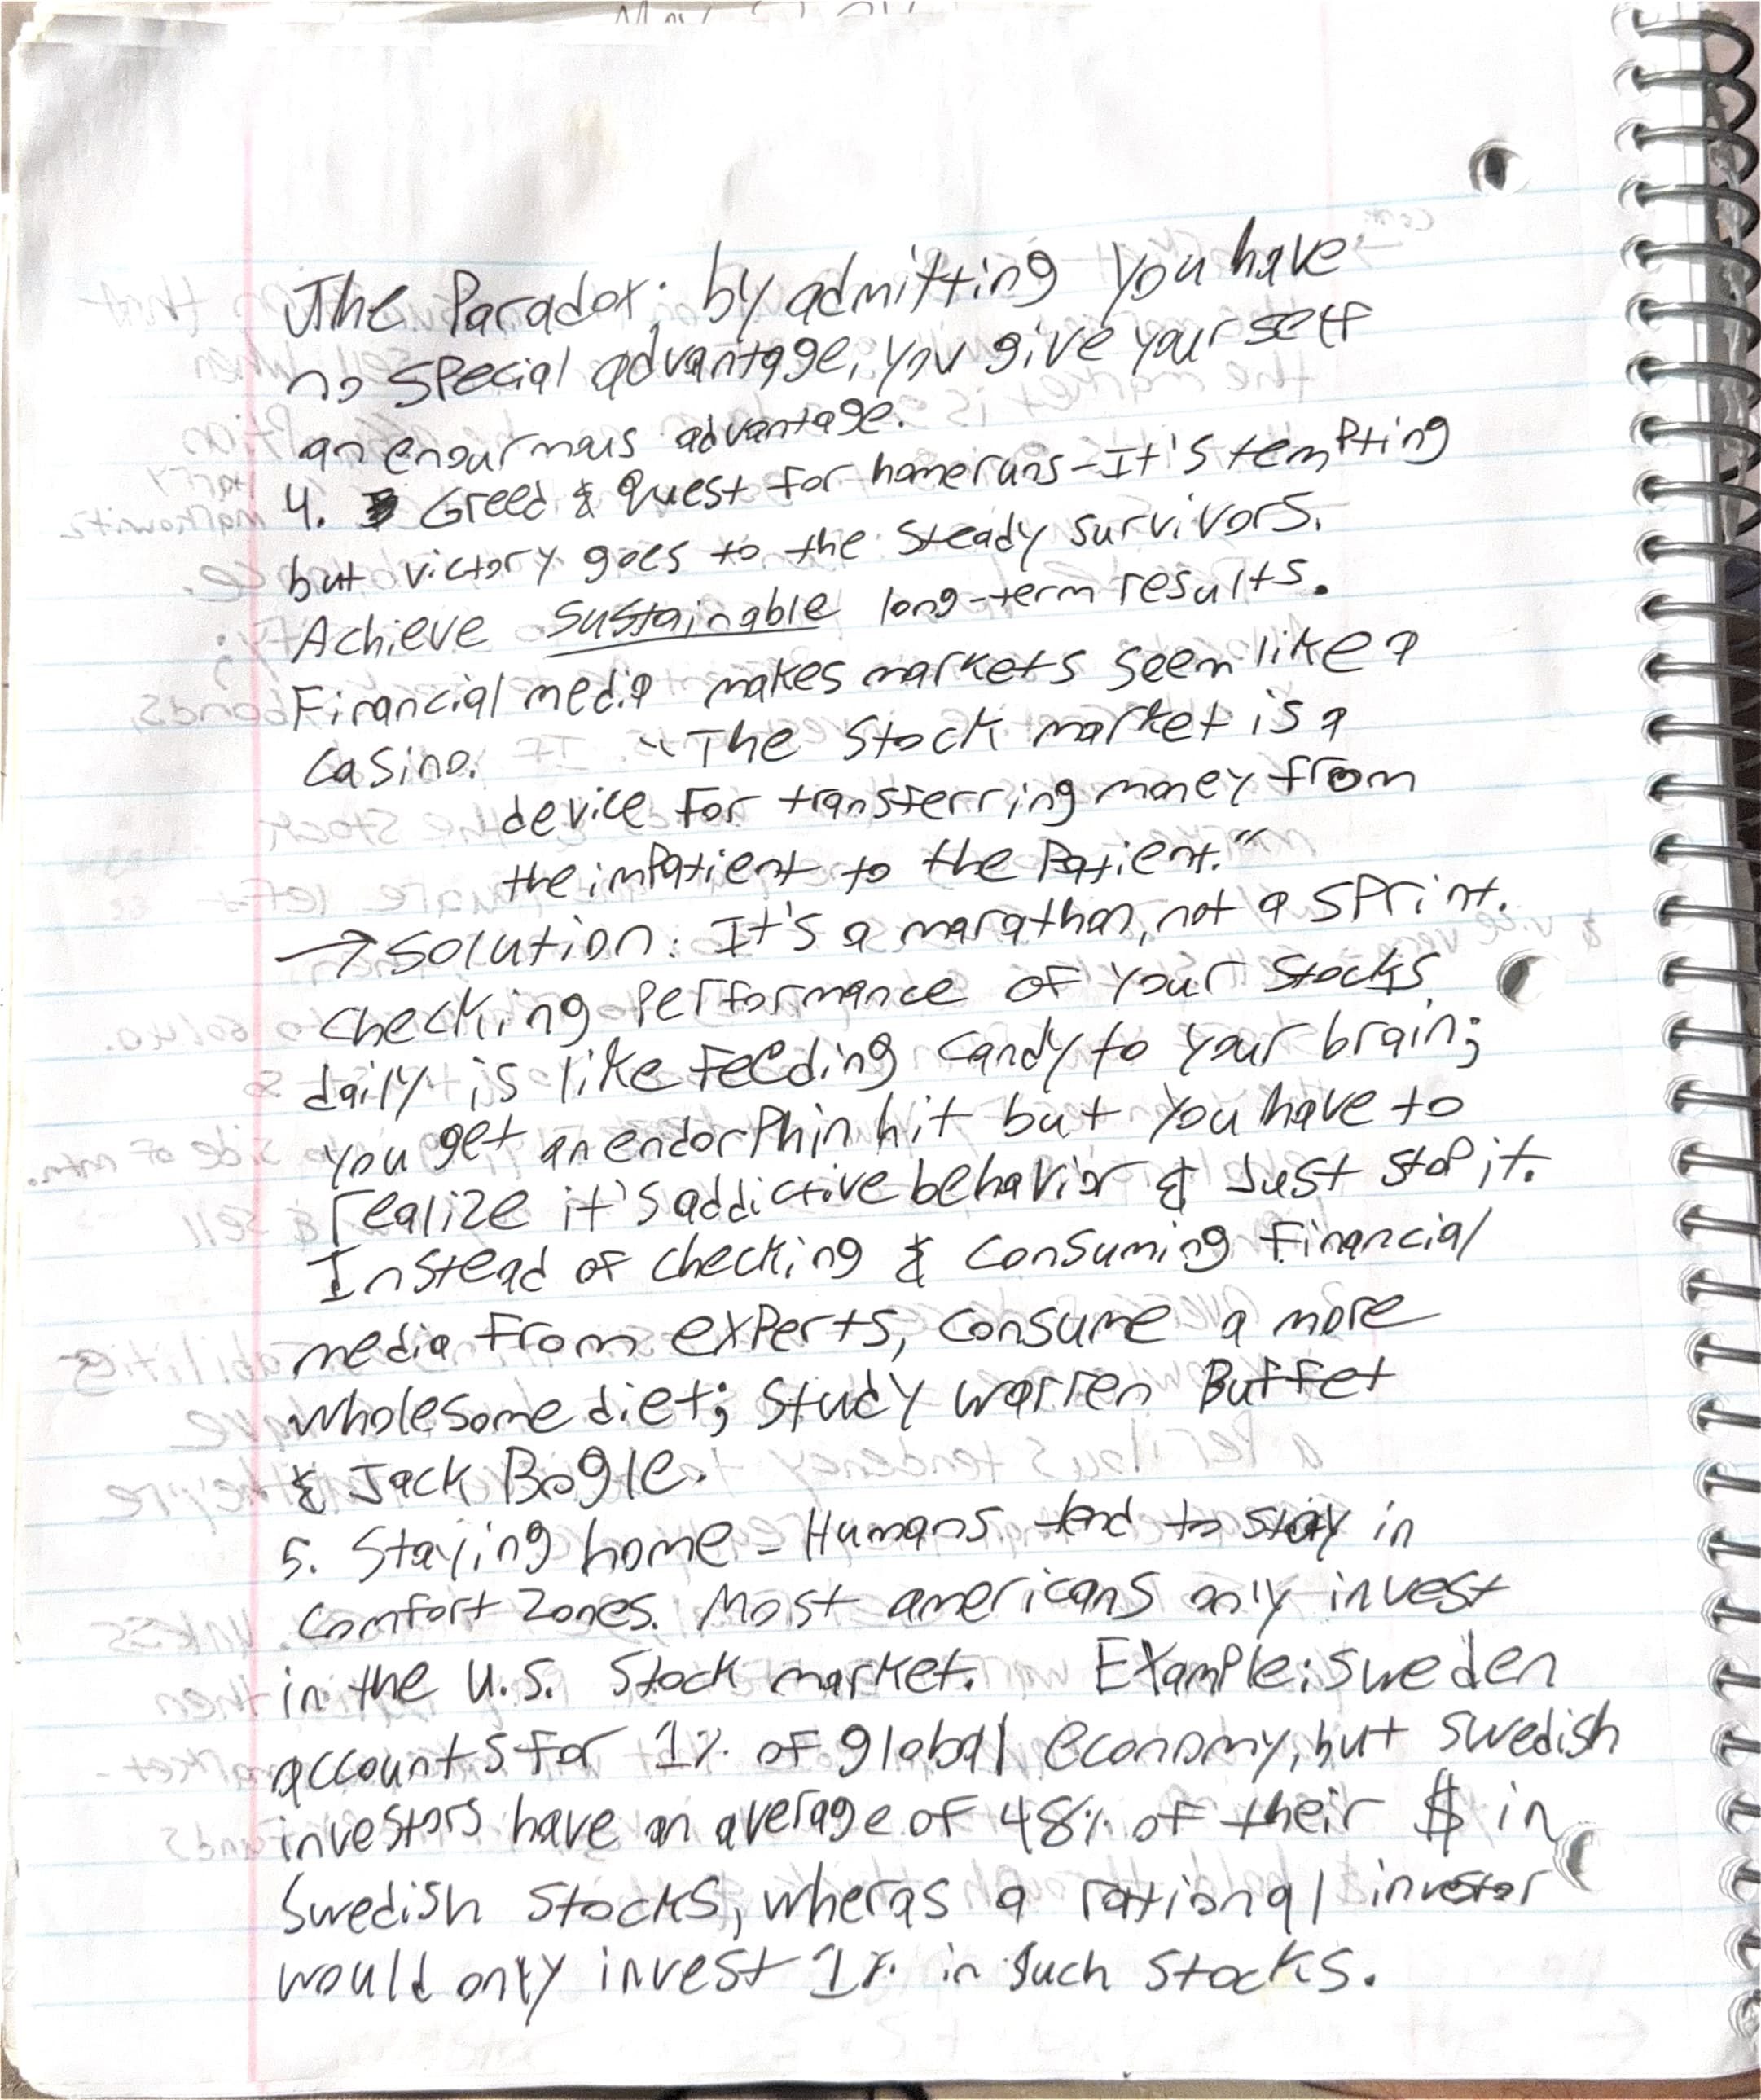 The Paradox; by admitting you have
no special advantage, you give yourself
an enourmous advantage.
4. Greed & Quest for homeruns - It's tempting
but victory goes to the steady survivors.
Achieve sustainable long-term results.
Financial media makes markets seem like a
casino. "The stock market is a
device for transferring money from
the impatient to the patient."
→ solution: It's a marathon, not a sprint.
checking performance of your stocks
daily is like feeding candy to your brain;
you get an endorphin hit but you have to
realize it's addictive behavior & Just stop it.
Instead of checking & consuming financial
media from experts, consume a more
wholesome diet; study warren Buffet
& Jack Bogle.
5. Staying home - Humans tend to stay in
comfort zones. Most americans only invest
in the U.S. Stock market. Example: sweden
accounts for 1% of global economy, but swedish
investors have an average of 48% of their $ in
Swedish stocks, wheras a rational investor
would only invest 1% in such stocks.